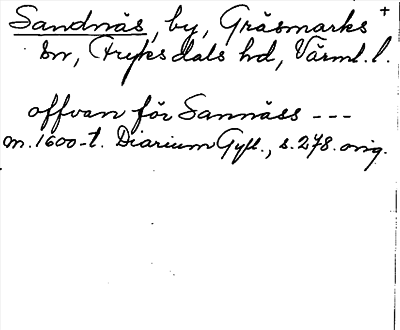 Sandnäs, by, Gräsmarks +
sn, Fryksdals hd, Värml. l.
offvan för Sannäss ---
m. 1600-t. Diarium Gyll., s. 278. orig.